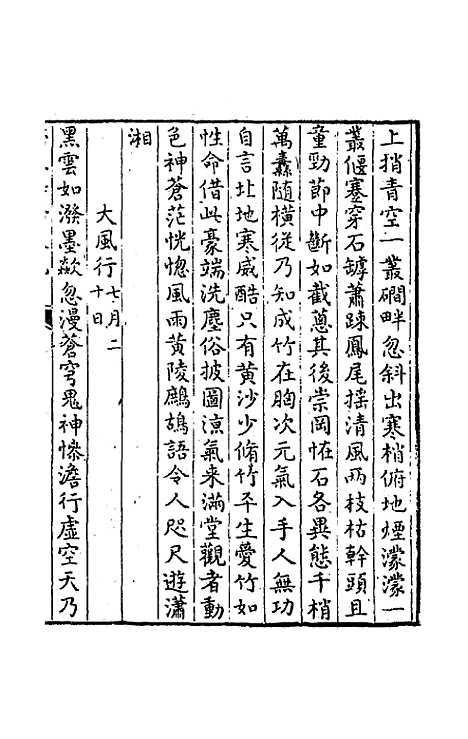 上捎青空一叢磵畔忽斜出寒梢俯地煙濛濛一
叢偃蹇穿石罅蕭踈鳳尾搖清風兩枝枯幹頭且
童勁節中斷如截蔥其後崇岡恠石各異態千梢
萬纛隨橫從乃知成竹在胸次元氣入手人無功
自言北地寒威酷只有黃沙少脩竹平生愛竹如
性命借此豪端洗塵俗披圖涼氣来滿堂觀者動
色神蒼茫恍惚風雨黃陵廟鷓鴣語令人咫尺遊瀟
湘
大風行七月二十日
黑雲如潑墨歘忽漫蒼穹鬼神慘澹行虛空天乃